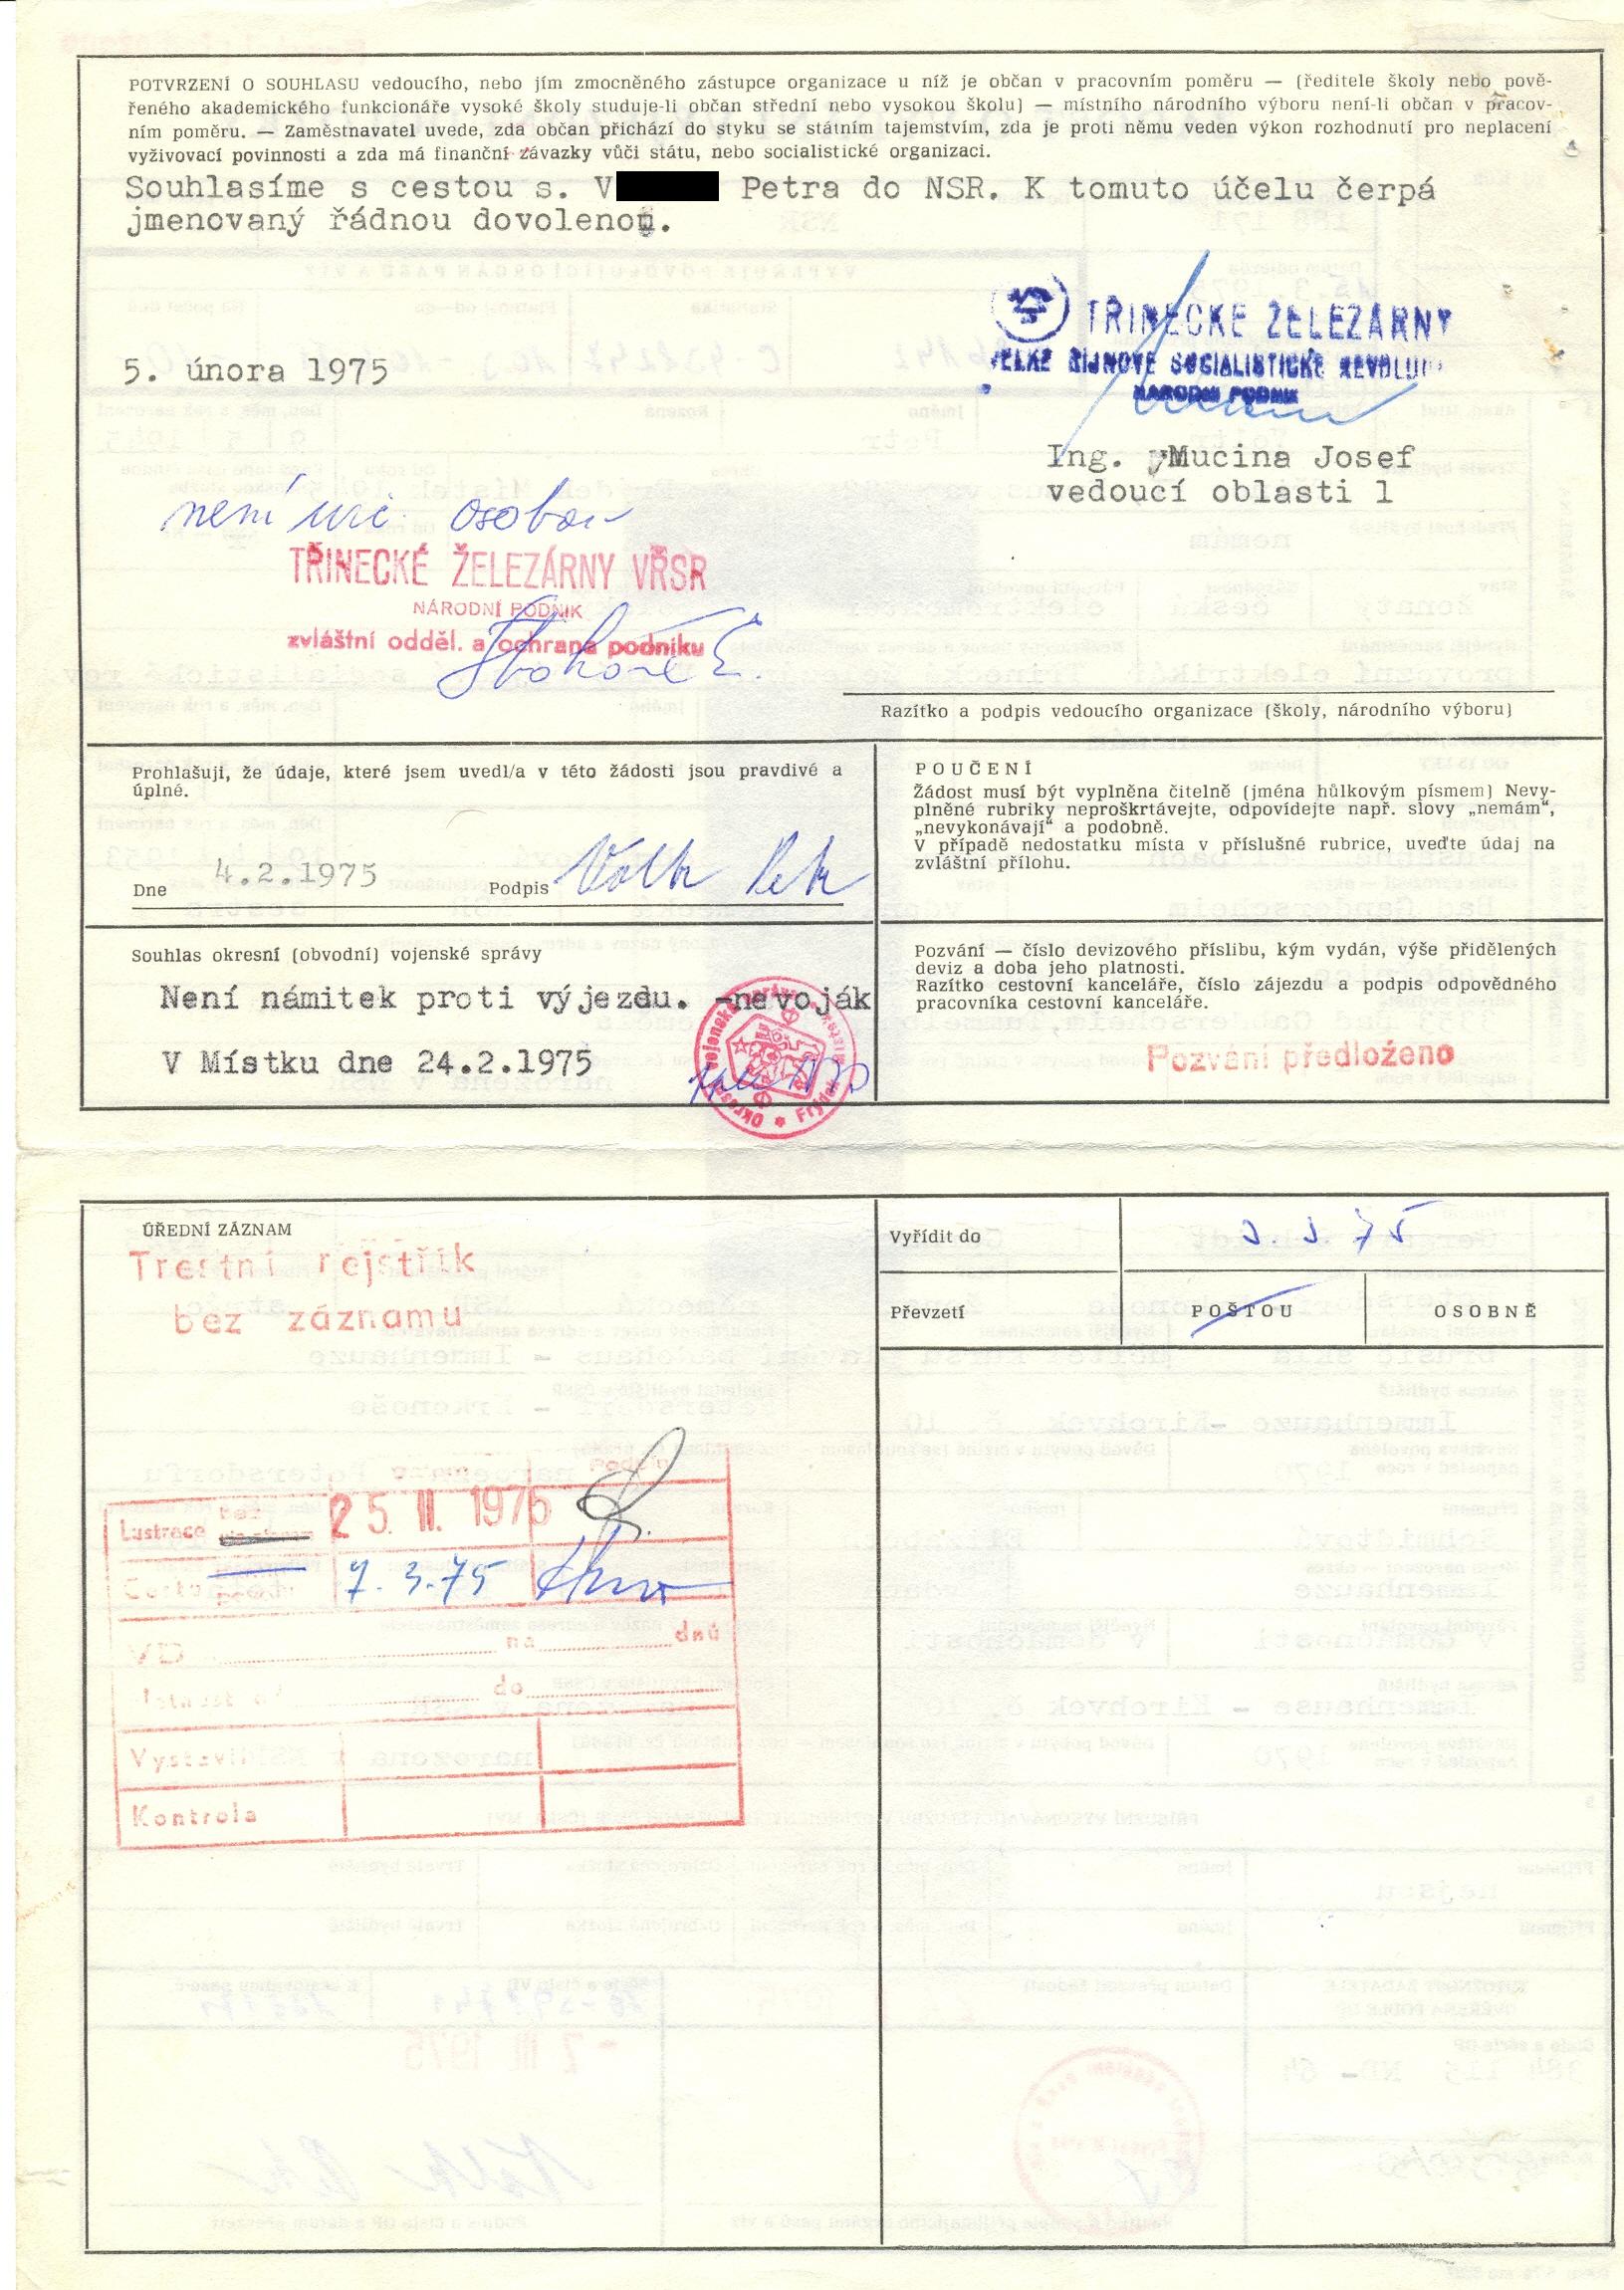 POTVRZENÍ O SOUHLASU vedoucího, nebo jím zmocněného zástupce organizace u níž je občan v pracovním poměru — (ředitele školy nebo pově-
řeného akademického funkcionáře vysoké školy studuje-li občan střední nebo vysokou školu) — místního národního výboru není-li občan v pracov-
ním poměru. — Zaměstnavatel uvede, zda občan přichází do styku se státním tajemstvím, zda je proti němu veden výkon rozhodnutí pro neplacení
vyživovací povinnosti a zda má finanční závazky vůči státu, nebo socialistické organizaci.
Souhlasíme s cestou s. V Petra do NSR. K tomuto účelu čerpá
jmenovaný řádnou dovolenou.
TŘINECKÉ ŽELEZÁRNY
VELKÉ ŘÍJNOVÉ SOCIALISTICKÉ REVOLUCE
NÁRODNÍ PODNIK
5. února 1975
Ing. Mucina Josef
vedoucí oblasti 1
není osobou
TŘINECKÉ ŽELEZÁRNY VŘSR
NÁRODNÍ PODNIK
zvláštní odděl. a ochrana podniku
Razítko a podpis vedoucího organizace (školy, národního výboru)
Prohlašuji, že údaje, které jsem uvedl/a v této žádosti jsou pravdivé a
úplné.
Dne 4.2.1975 Podpis
POUČENÍ
Žádost musí být vyplněna čitelně (jména hůlkovým písmem) Nevy-
plněné rubriky neproškrtávejte, odpovídejte např. slovy „nemám“,
„nevykonávají“ a podobně.
V případě nedostatku místa v příslušné rubrice, uveďte údaj na
zvláštní přílohu.
Souhlas okresní (obvodní) vojenské správy
Není námitek proti výjezdu. -nevoják
V Místku dne 24.2.1975
Pozvání — číslo devizového příslibu, kým vydán, výše přidělených
deviz a doba jeho platnosti.
Razítko cestovní kanceláře, číslo zájezdu a podpis odpovědného
pracovníka cestovní kanceláře.
Pozvání předloženo
ÚŘEDNÍ ZÁZNAM
Trestní rejstřík
bez záznamu
Vyřídit do 3. 3. 75
Převzetí POŠTOU OSOBNĚ
Podpis
Lustrace bez 25. II. 1975
7. 3. 75
VD na dnů
do
Vystavil
Kontrola